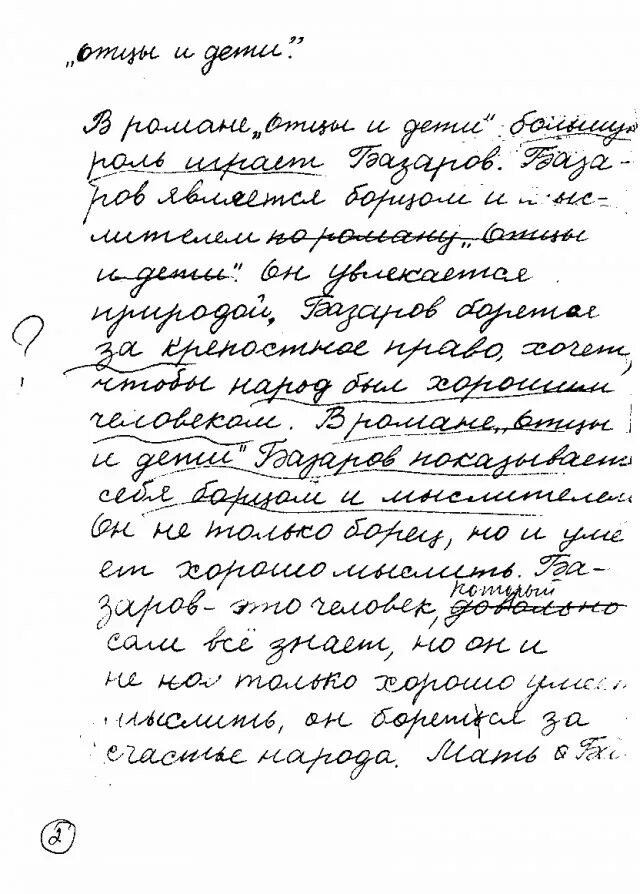 „Отцы и дети."
В романе „Отцы и дети" большую
роль играет Базаров. База-
ров является борцом и мыс-
лителем по роману „Отцы
и дети". Он увлекается
природой. Базаров борется
за крепостное право, хочет,
?
чтобы народ был хорошим
человеком. В романе „Отцы
и дети" Базаров показывает
себя борцом и мыслителем
Он не только борец, но и уме
ет хорошо мыслить. Ба-
который
заров - это человек, довольно
сам всё знает, но он и
не только хорошо умеет
мыслить, он борется за
счастье народа. Мать
2